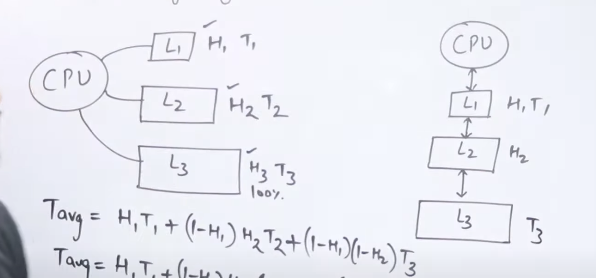 CPU
L1 H1 T1
L2 H2 T2
L3 H3 T3
100%
CPU
L1 H1 T1
L2 H2
L3 T3
Tavg = H1T1 + (1-H1) H2T2 + (1-H1)(1-H2) T3
Tavg = H1T1 + (1-H1)